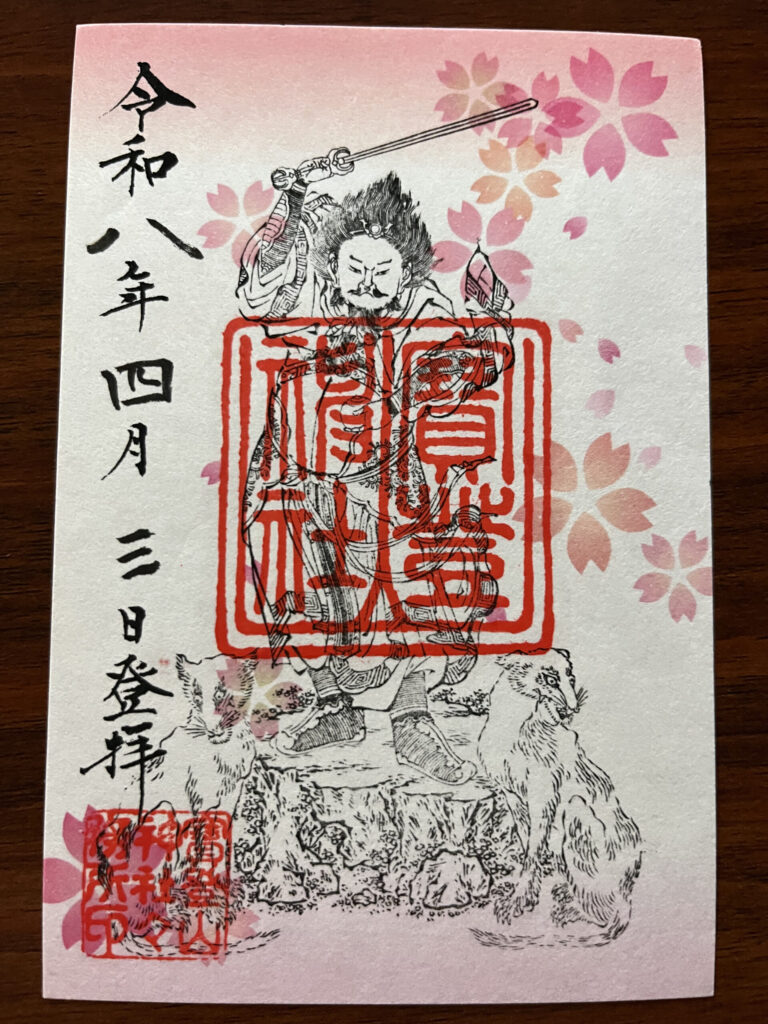 寶登
神社
令和八年四月三日登拝
寶登山
神社々
務所印